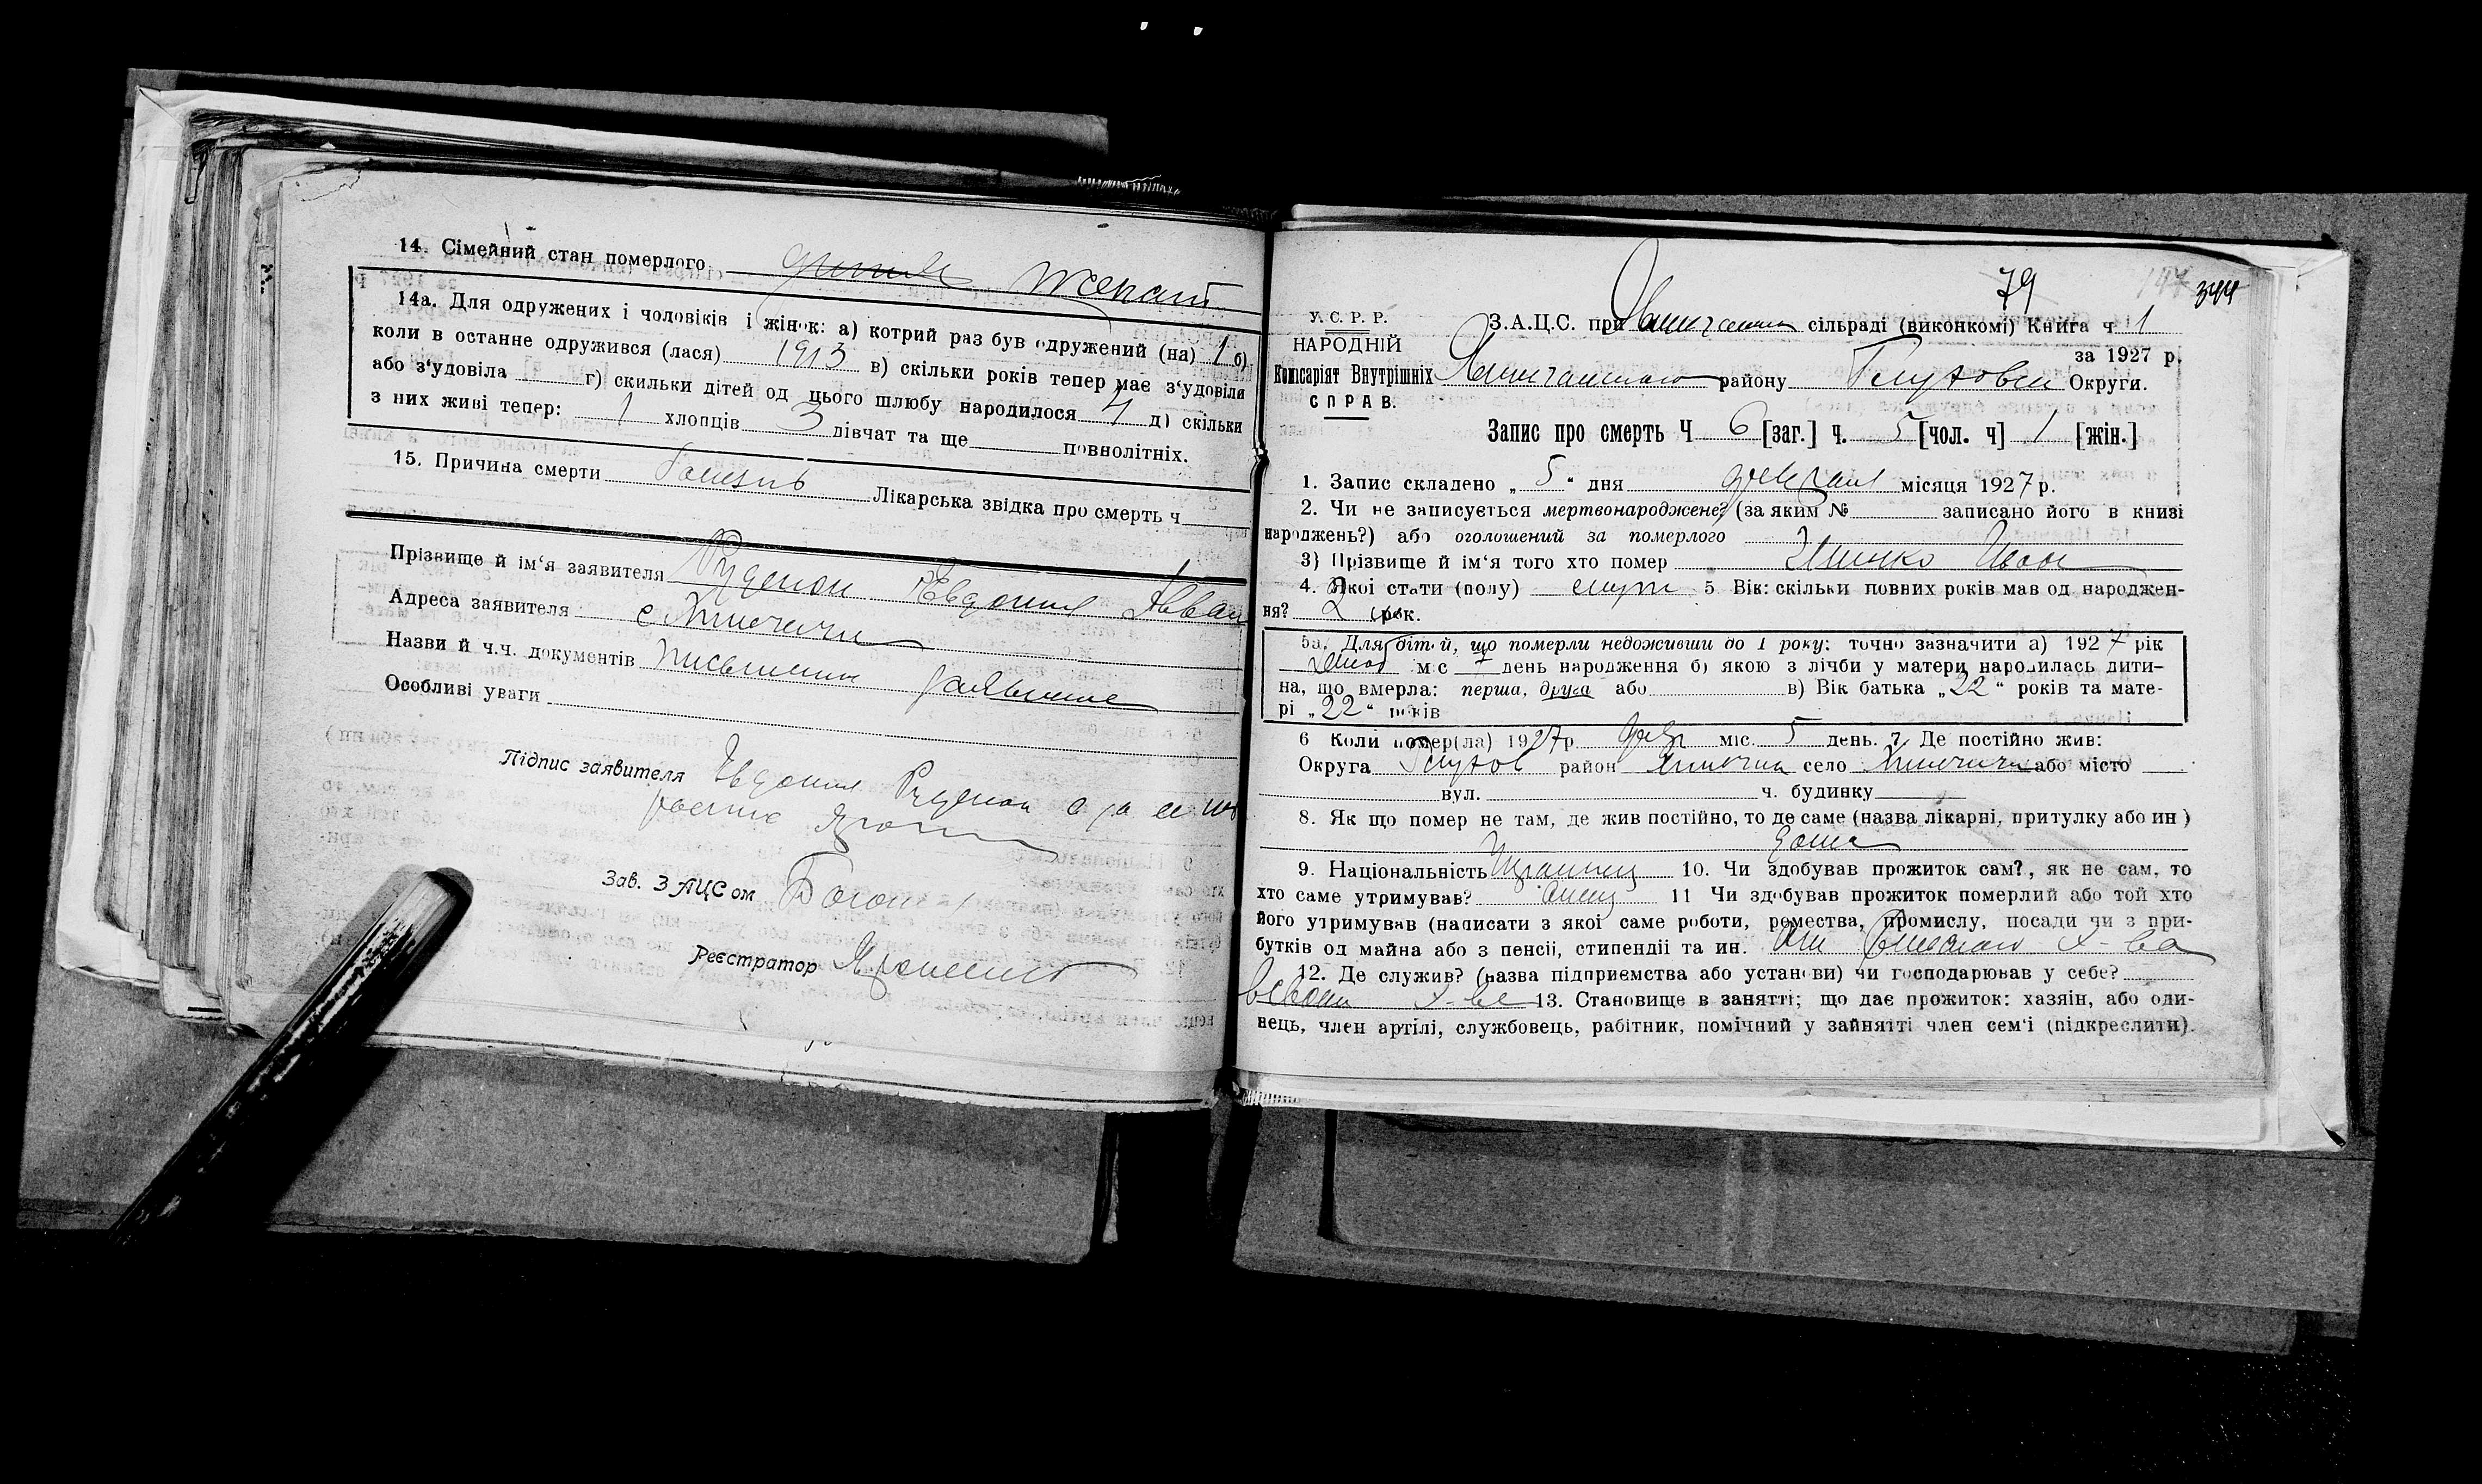 14. Сімейний стан померлого женат
14а. Для одружених і чоловіків і жінок: а) котрий раз був одружений (на) 1 б)
коли в останне одружився (лася) 1913 в) скільки років тепер має з'удовіла
або з'удовіла г) скильки дітей од цього шлюбу народилося 4 д) скільки
з них живі тепер: 1 хлопців 3 дівчат та ще повнолітніх.
15. Причина смерти болезнь Лікарська звідка про смерть ч
Прізвище й ім'я заявителя Руденок Евдокия
Адреса заявителя с
Назви й ч.ч. документів письмени заявление
Особливі уваги
Підпис заявителя Евдокия Руденок а за ее
Зав. ЗАЦСом
Реєстратор
79
344
У. С. Р. Р.
НАРОДНІЙ
Комісаріят Внутрішніх
СПРАВ.
З.А.Ц.С. при сільраді (виконкомі) Книга ч 1
за 1927 р.
району Глуховск Округи.
Запис про смерть Ч 6 [заг.] ч. 5 [чол. ч] 1 [жін.]
1. Запис складено „ 5 " дня февраля місяця 1927 р.
2. Чи не записується мертвонароджене? (за яким № записано його в книзі
народжень?) або оголошений за померлого
3) Прізвище й ім'я того хто помер Иван
4. Якої стати (полу) 5 Вік: скільки повних років мав од народжен-
ня? 2
5а. Для дітей, що померли недоживши до 1 року: точно зазначити а) 1927 рік
міс 7 день народження б) якою з лічби у матери народилась дити-
на, що вмерла: перша, друга або в) Вік батька „22" років та мате-
рі „22" років
6 Коли помер(ла) 1927р февр міс. 5 день. 7. Де постійно жив:
Округа Глухов район село або місто
вул. ч. будинку
8. Як що помер не там, де жив постійно, то де саме (назва лікарні, притулку або ин)
дома
9. Національність Украинец 10. Чи здобував прожиток сам?, як не сам, то
хто саме утримував? отец 11 Чи здобував прожиток померлий або той хто
його утримував (написати з якої саме роботи, ремества, промислу, посади чи з при-
бутків од майна або з пенсії, стипендії та ин. х-ва
12. Де служив? (назва підприємства або установи) чи господарював у себе?
х-ве 13. Становище в занятті; що дає прожиток: хазяїн, або оди-
нець, член артілі, службовець, рабітник, помічний у зайнятті член сем'ї (підкреслити).